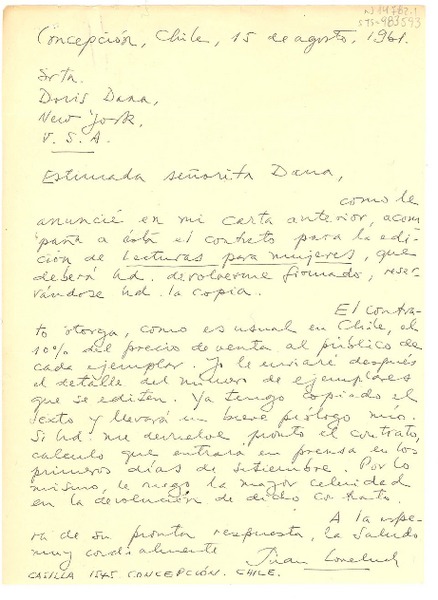 Concepción, Chile, 15 de agosto, 1961.
Srta.
Doris Dana,
New York.
U. S. A.
Estimada señorita Dana,
como le
anuncié en mi carta anterior, acom
paña a ésta el contrato para la edi-
ción de Lecturas para mujeres, que
deberá Ud. devolverme firmado, reser-
vándose Ud. la copia.
El contra-
to otorga, como es usual en Chile, el
10% del precio de venta al público de
cada ejemplar. Yo le enviaré después
el detalle del número de ejemplares
que se editen. Ya tengo copiado el
texto y llevará un breve prólogo mío.
Si Ud. me devuelve pronto el contrato,
calculo que entrará en prensa en los
primeros días de setiembre. Por lo
mismo, le ruego la mayor celeridad
en la devolución de dicho contrato.
A la espe-
ra de su pronta respuesta, la saluda
muy cordialmente Juan Loveluck
CASILLA 1545. CONCEPCIÓN. CHILE.